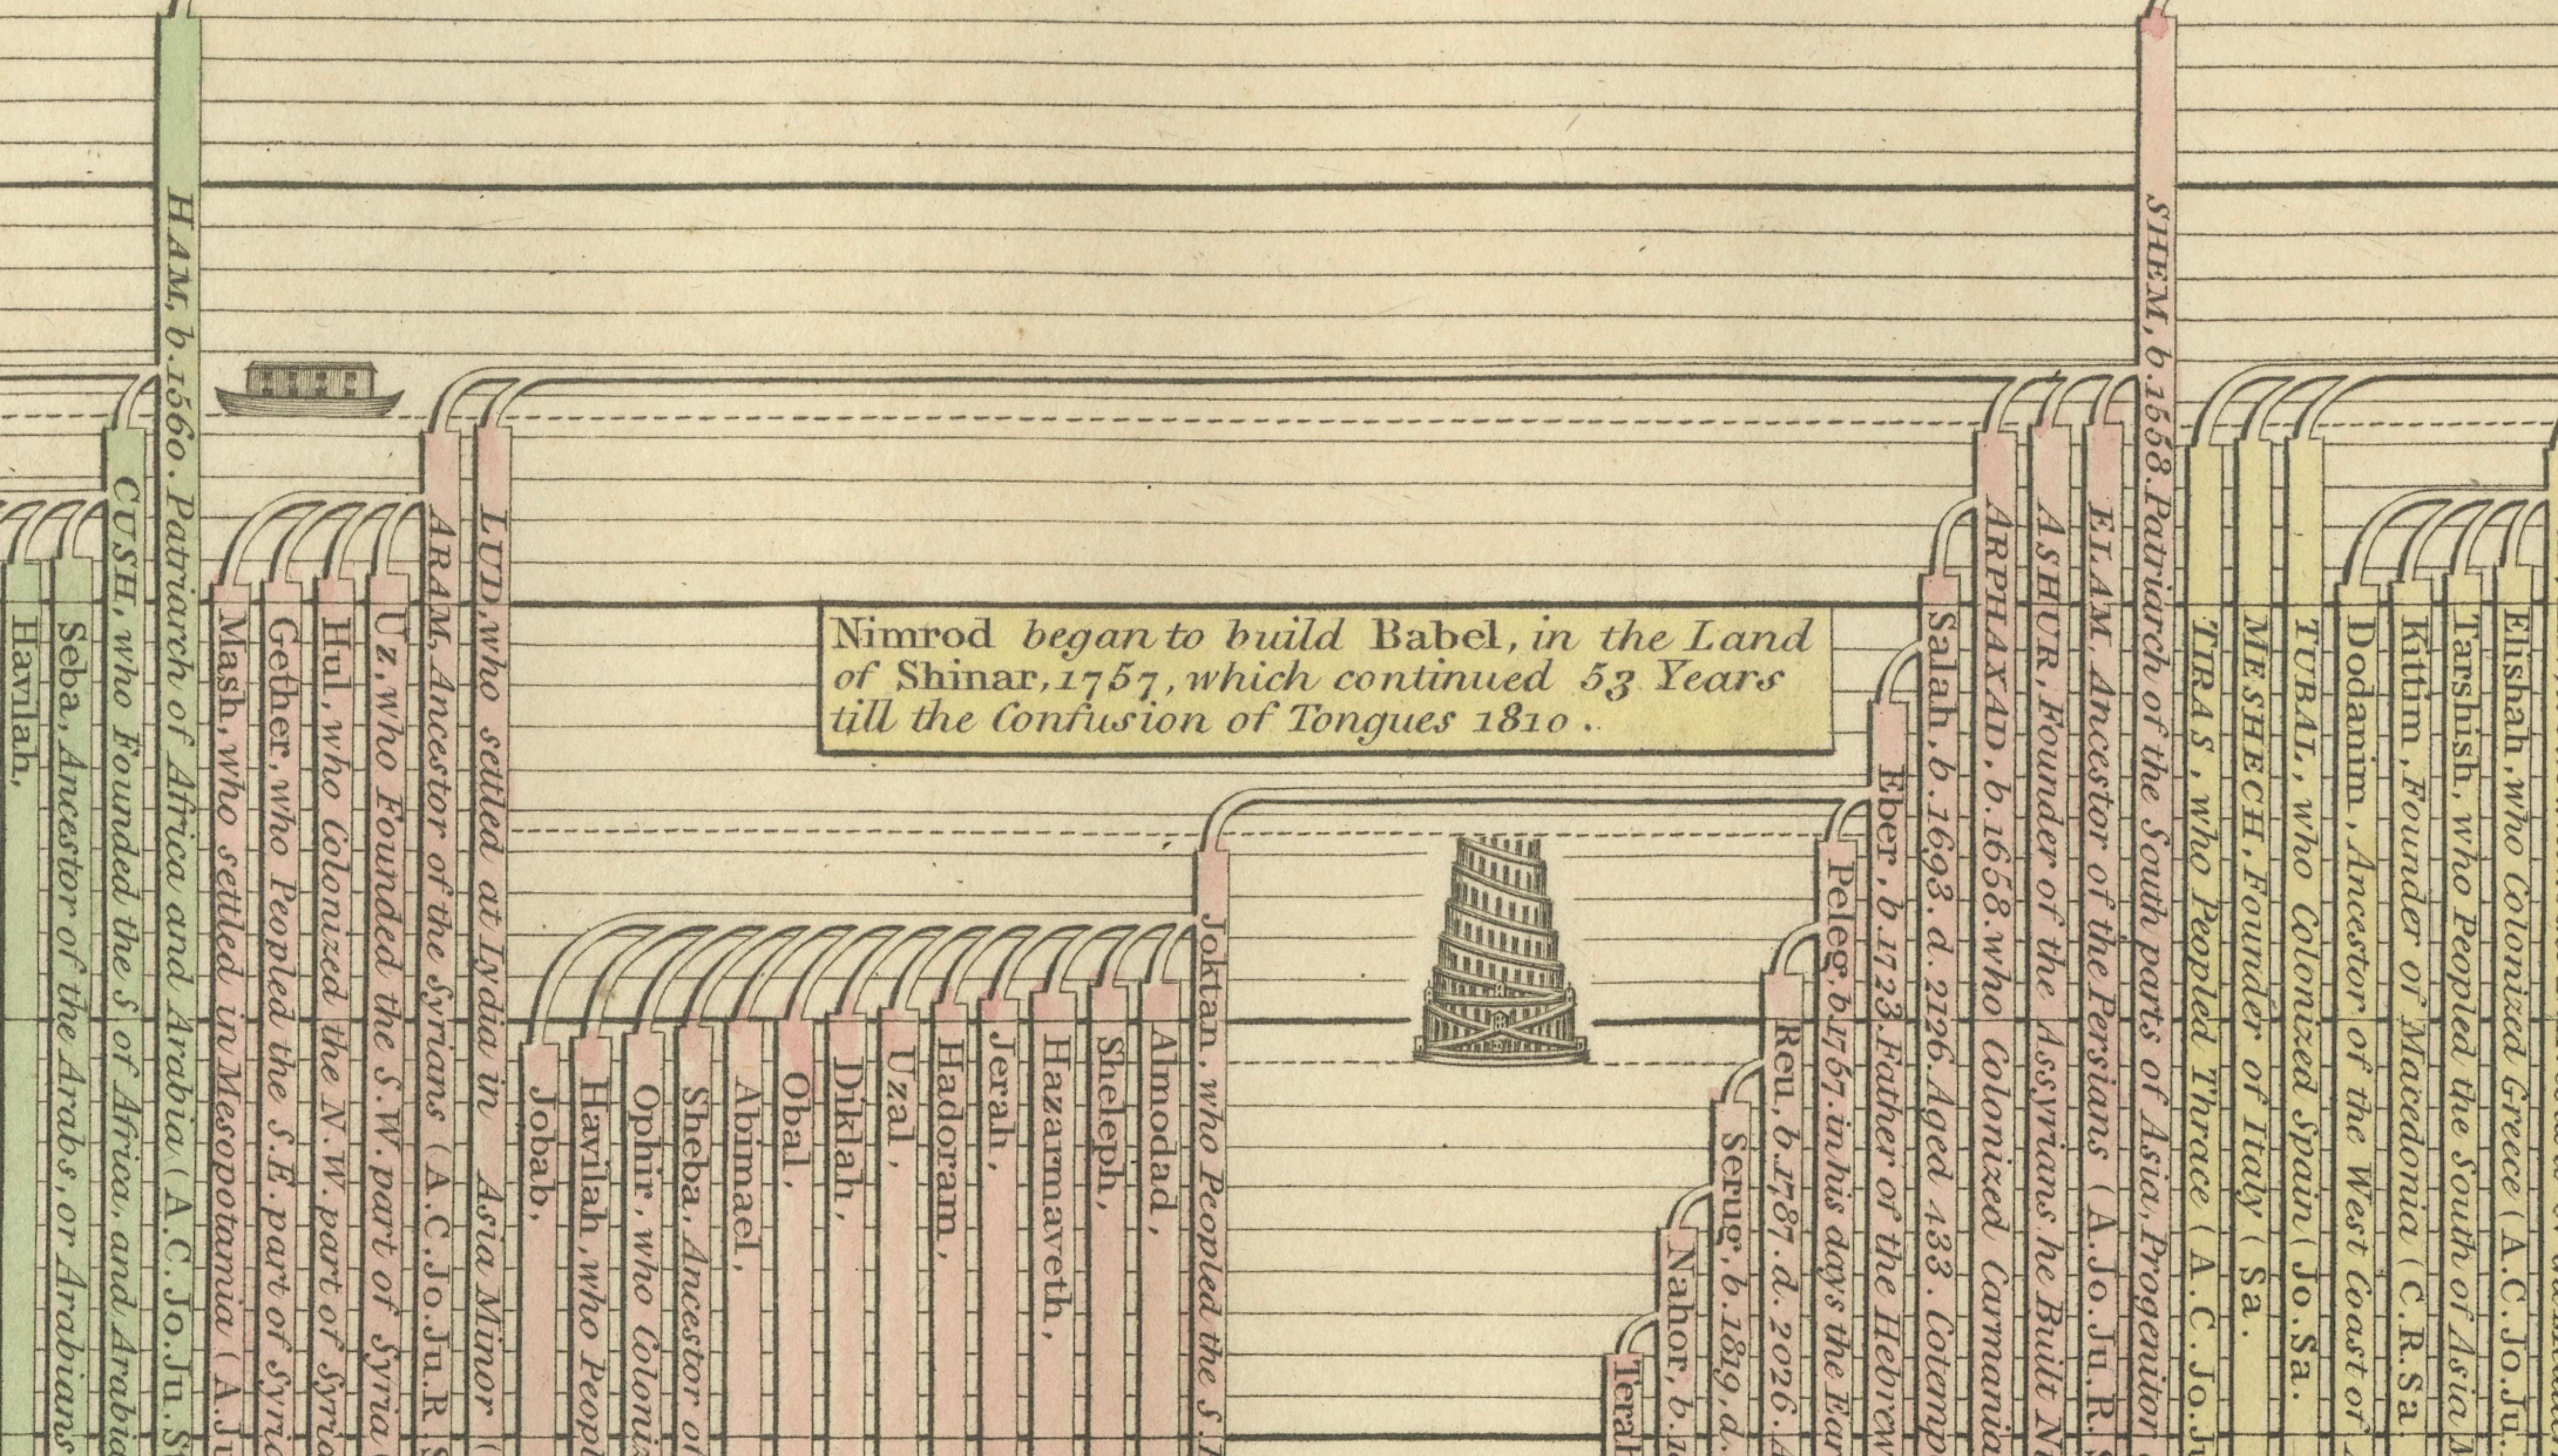 Havilah,
Seba, Ancestor of the Arabs, or Arabians
CUSH, who Founded the S of Africa, and Arabia
HAM, b. 1560. Patriarch of Africa and Arabia (A.C. Jo. Ju. S
Mash, who settled in Mesopotamia (A. Ju
Gether, who Peopled the S.E. part of Syria
Hul, who Colonized the N.W. part of Syria
Uz, who Founded the S.W. part of Syria
ARAM, Ancestor of the Syrians (A.C. Jo. Ju. R. S
LUD, who settled at Lydia in Asia Minor (
Nimrod began to build Babel, in the Land
of Shinar, 1757, which continued 53 Years
till the Confusion of Tongues 1810.
Jobab,
Havilah, who Peopl
Ophir, who Coloniz
Sheba, Ancestor of
Abimael,
Obal,
Diklah,
Uzal,
Hadoram,
Jerah,
Hazarmaveth,
Sheleph,
Almodad,
Joktan, who Peopled the S.
Terah
Nahor, b.
Serug, b. 1819, d.
Reu, b. 1787. d. 2026. A
Peleg, b. 1757. in his days the Ear
Eber, b. 1723. Father of the Hebrew
Salah, b. 1693. d. 2126. Aged 433. Cotemp
ARPHAXAD, b. 1658. who Colonized Carmania
ASHUR, Founder of the Assyrians he Built Ni
ELAM, Ancestor of the Persians (A. Jo. Ju. R. S
SHEM, b. 1558. Patriarch of the South parts of Asia, Progenitor
TIRAS, who Peopled Thrace (A.C. Jo. Ju
MESHECH, Founder of Italy (Sa.
TUBAL, who Colonized Spain (Jo. Sa.
Dodanim, Ancestor of the West Coast of
Kittim, Founder of Macedonia (C.R. Sa.
Tarshish, who Peopled the South of Asia M
Elishah, who Colonized Greece (A.C. Jo. Ju.